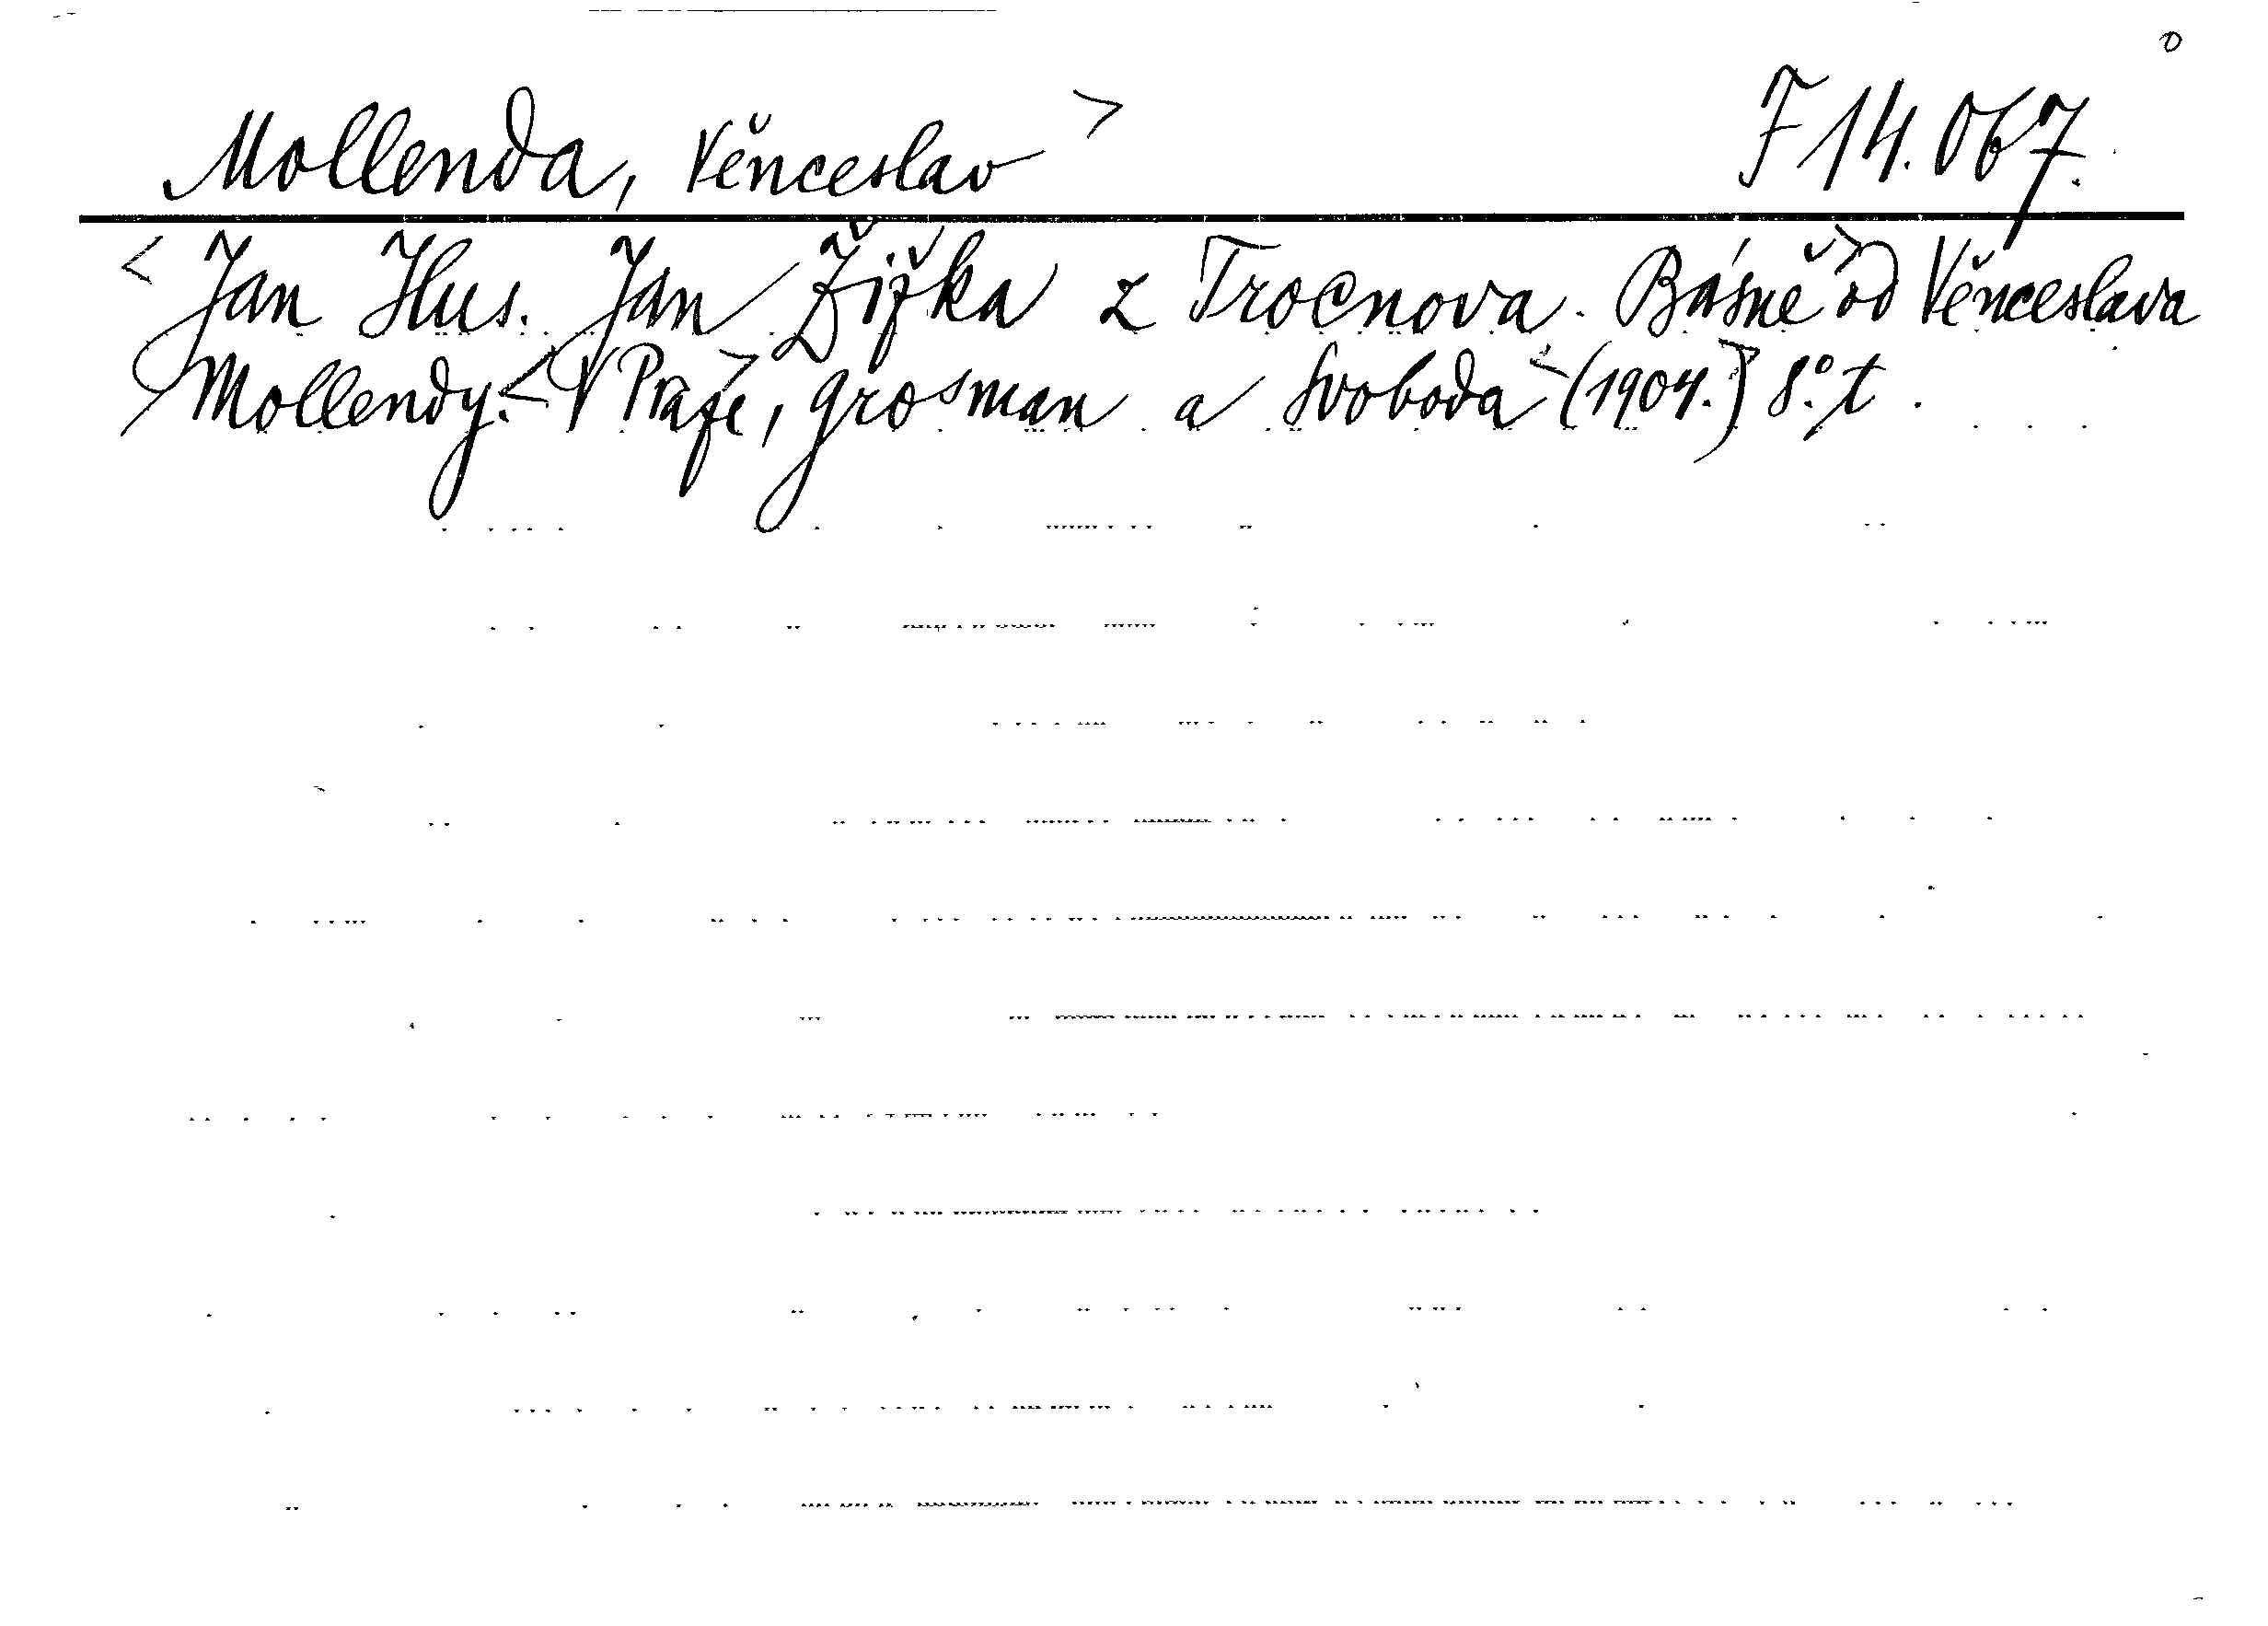 Mollenda, Věnceslav > F 14.067.
< Jan Hus. Jan Žižka z Trocnova. Básně > od Věnceslava
Mollendy. < V Praze, > Grosman a Svoboda < (1904.) > 8.° t.